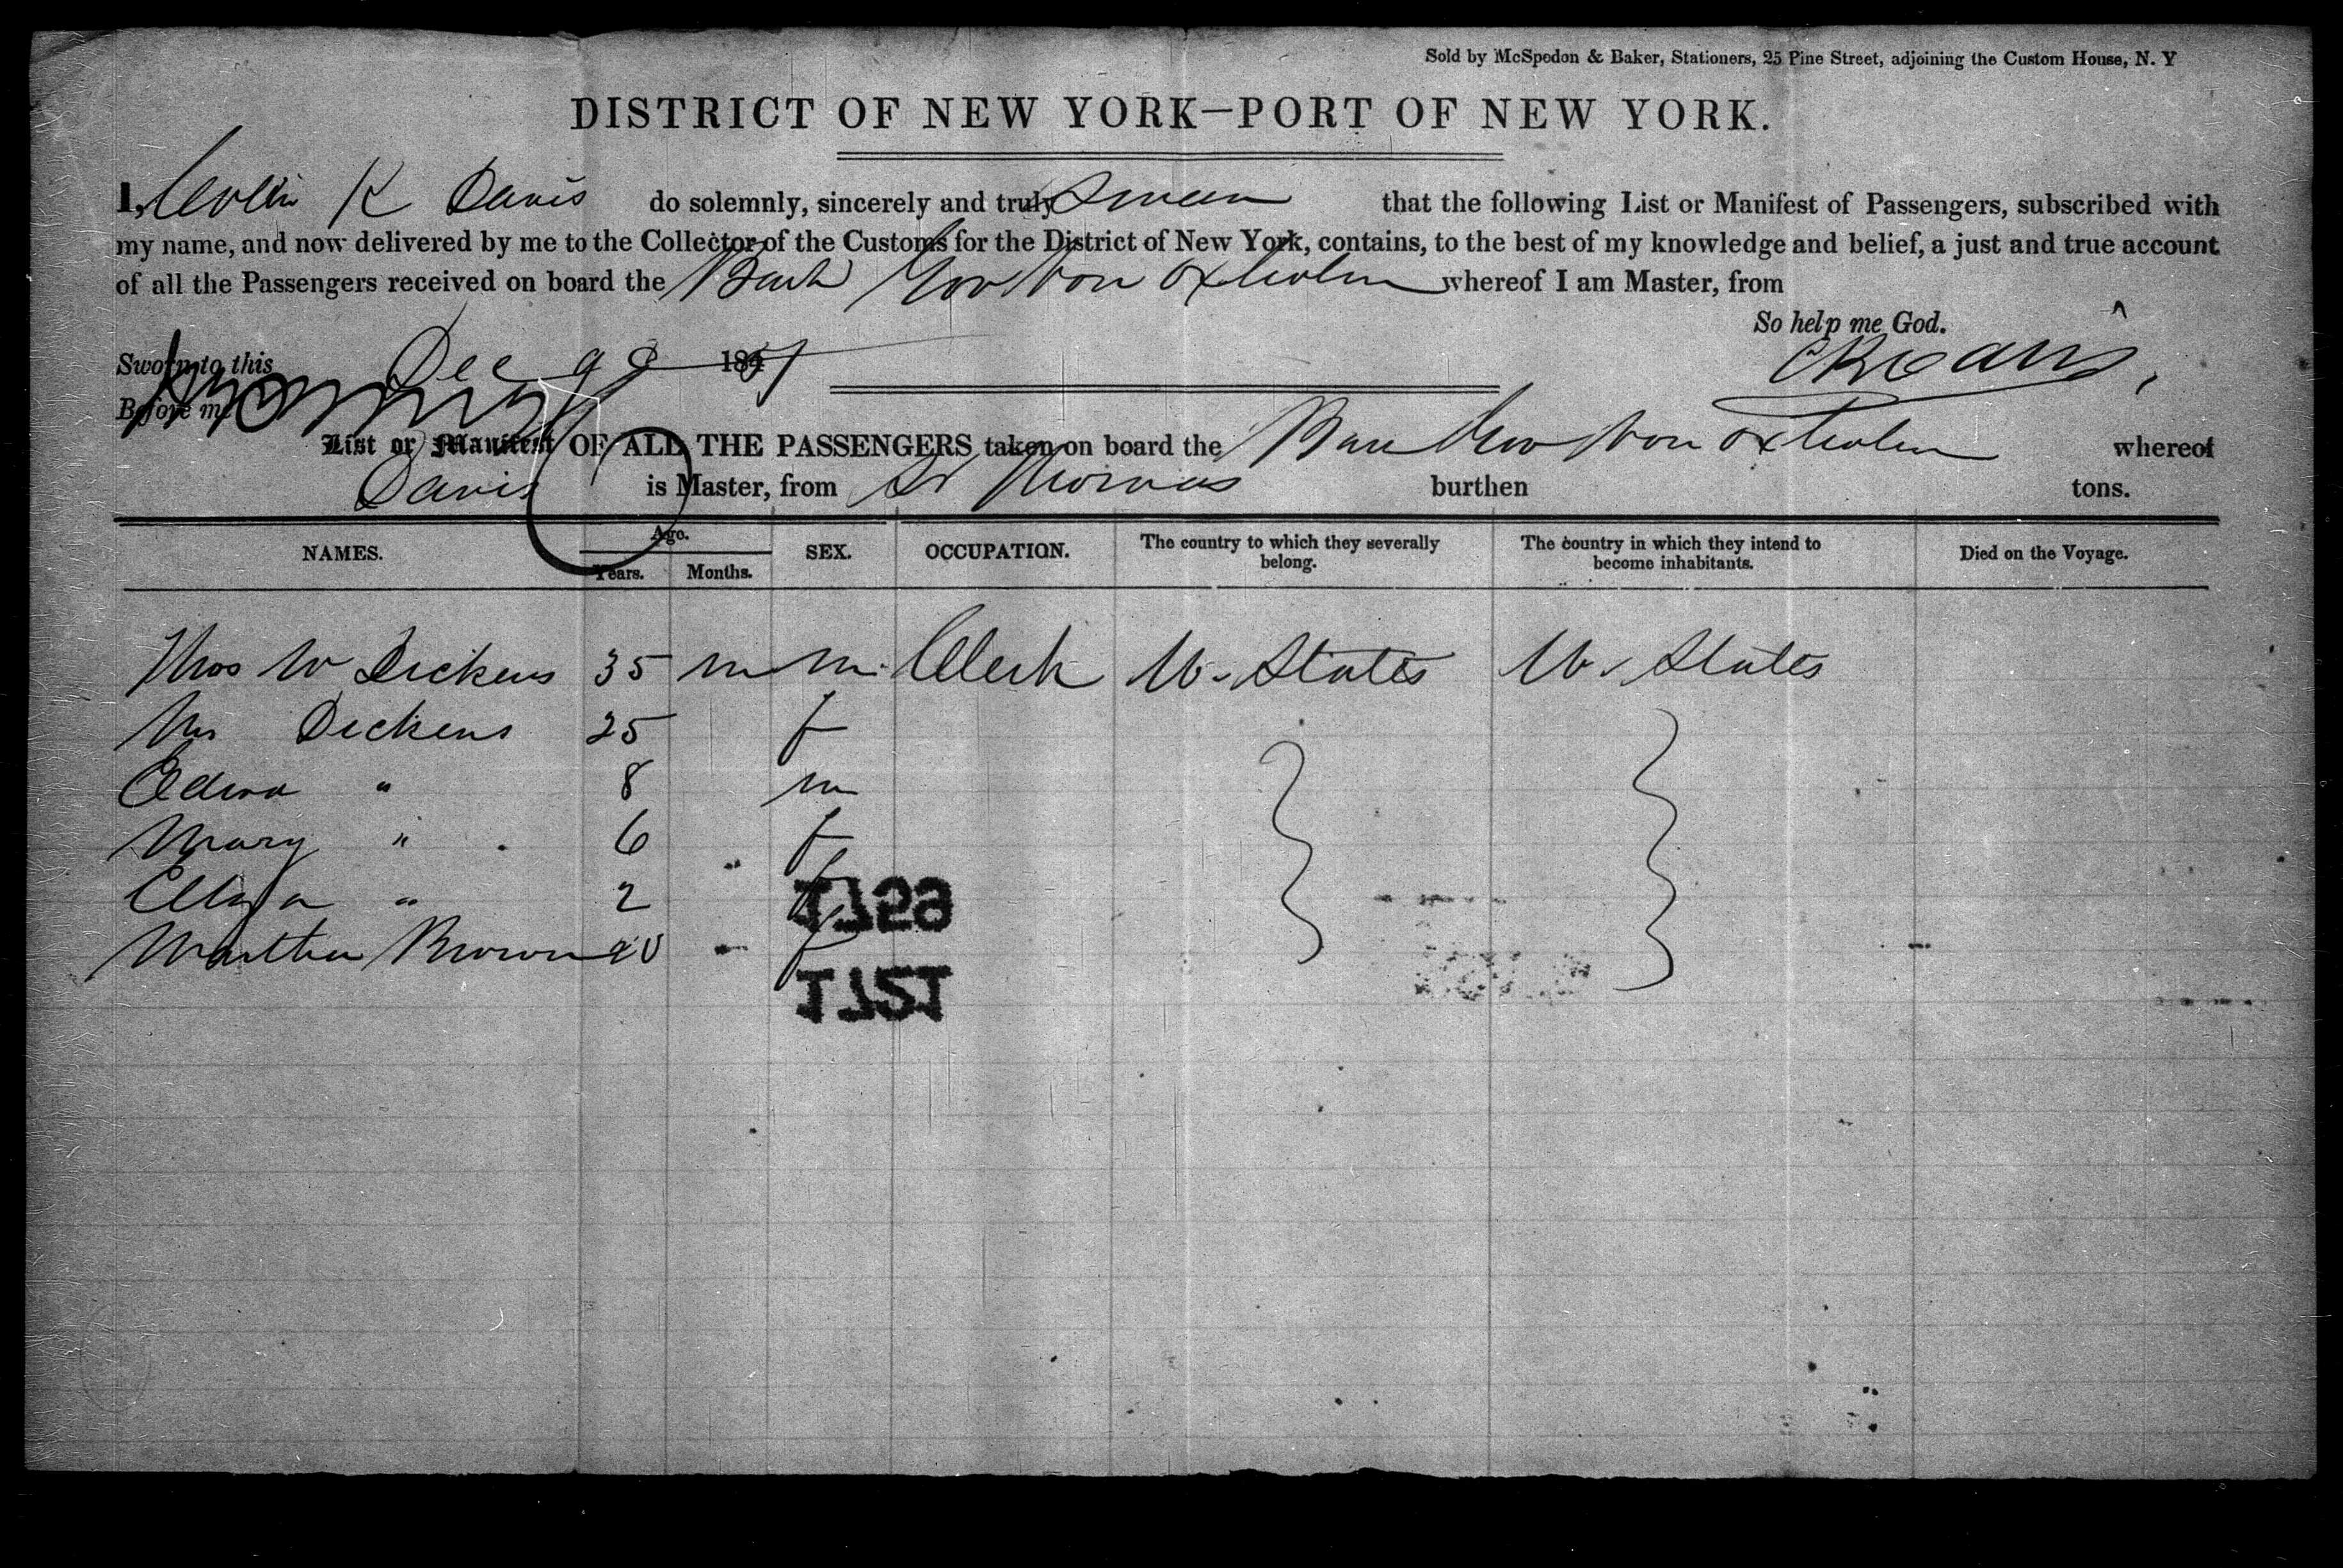 Sold by McSpedon & Baker, Stationers, 25 Pine Street, adjoining the Custom House, N. Y
DISTRICT OF NEW YORK—PORT OF NEW YORK.
I, K Davis do solemnly, sincerely and truly Swear that the following List or Manifest of Passengers, subscribed with
my name, and now delivered by me to the Collector of the Customs for the District of New York, contains, to the best of my knowledge and belief, a just and true account
of all the Passengers received on board the Bark Gov Von Oxholm whereof I am Master, from
So help me God.
Sworn to this Dec 184
Davis
Before me
List or Manifest OF ALL THE PASSENGERS taken on board the Bark Gov Von Oxholm whereof
Davis is Master, from St Thomas burthen tons.
NAMES. Age. Years. Months. SEX. OCCUPATION. The country to which they severally belong. The country in which they intend to become inhabitants. Died on the Voyage.
Thos W Dickens 35 m Clerk U. States U. States
Mrs Dickens 25 f
8 m
Mary " 6 f
Eliza " 2 f
Martha Brown f